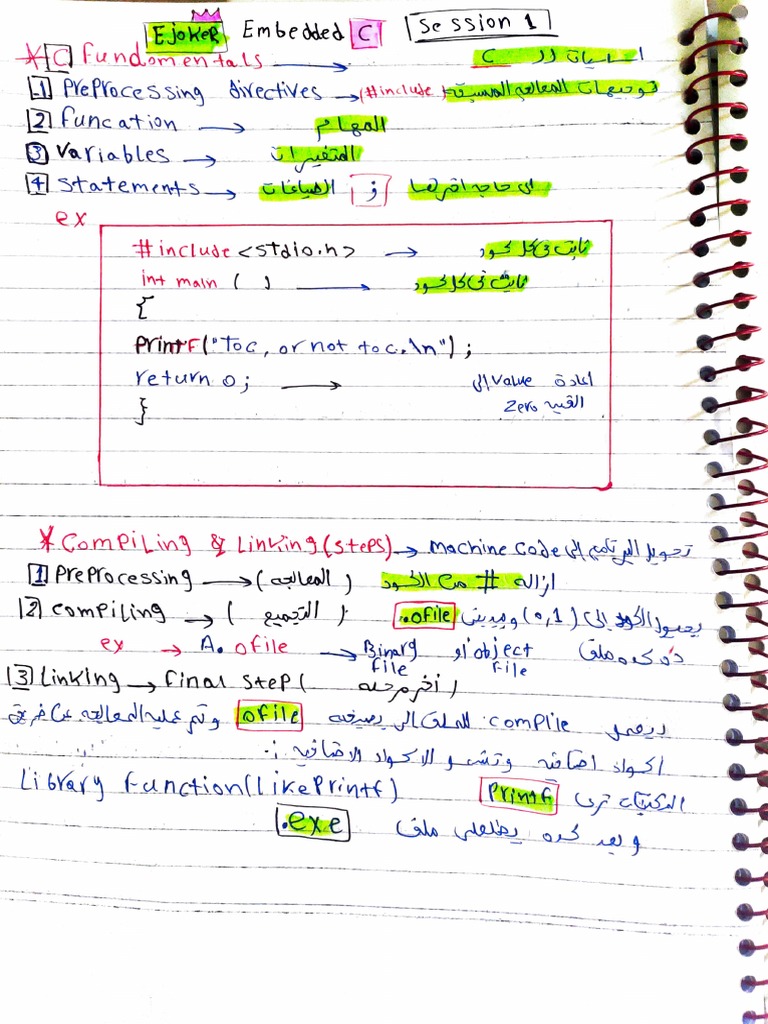 EJokeR Embedded C Session 1
* C Fundomentals → اساسيات الـ C
1 PreProcessing directives → (#include) توجيهات المعالجه المسبقة
2 funcation → المهام
3 Variables → المتغيرات
4 statements → الصياغات و اى حاجه اقراها
ex
#include <stdio.h> → ثابت فى كل كود
int main ( ) → ثابت فى كل كود
{
PrintF("Toc, or not toc.\n");
return 0; → اعادة Value الى
القيمه Zero
}
* COMPiLing & Linking (steps) → Machine Code تحويل البرنامج الى
1 PreProcessing → (المعالجه) ازاله # من الكود
2 compiling → (التجميع) يحول الكود الى (0,1) ويديني .ofile
ex → A. ofile → Binary file او object File ده كده ملف
3 Linking → final step (أخر مرحله)
complie للملف الى بصيغه ofile وتم عليه المعالجه عن طريق
اكواد اضافيه الاكواد الاضافيه :
Library function(LikePrintf) المكتبات زى Printf
و بعد كده يطلعلى ملف .exe